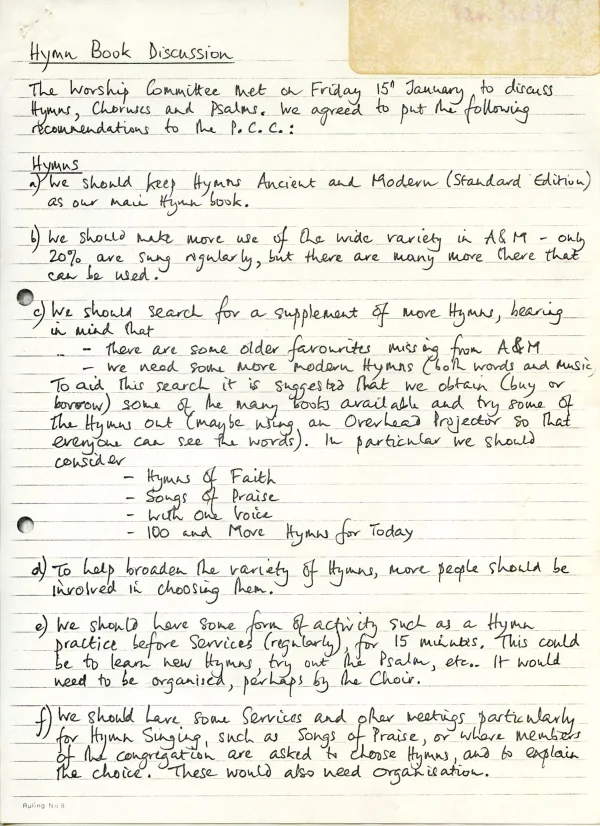 Hymn Book Discussion
The Worship Committee met on Friday 15th January to discuss
Hymns, Choruses and Psalms. We agreed to put the following
recommendations to the P.C.C.:
Hymns
a) We should keep Hymns Ancient and Modern (Standard Edition)
as our main Hymn book.
b) We should make more use of the wide variety in A&M - only
20% are sung regularly, but there are many more there that
can be used.
c) We should search for a supplement of more Hymns, bearing
in mind that
- there are some older favourites missing from A&M
- we need some more modern Hymns (both words and music)
To aid this search it is suggested that we obtain (buy or
borrow) some of the many books available and try some of
the Hymns out (maybe using an Overhead Projector so that
everyone can see the words). In particular we should
consider
- Hymns of Faith
- Songs of Praise
- With One Voice
- 100 and More Hymns for Today
d) To help broaden the variety of Hymns, more people should be
involved in choosing them.
e) We should have some form of activity such as a Hymn
practice before Services (regularly), for 15 minutes. This could
be to learn new Hymns, try out the Psalm, etc.. It would
need to be organised, perhaps by the Choir.
f) We should have some Services and other meetings particularly
for Hymn Singing, such as Songs of Praise, or where members
of the congregation are asked to choose Hymns, and to explain
the choice. These would also need organisation.
Ruling No 9.